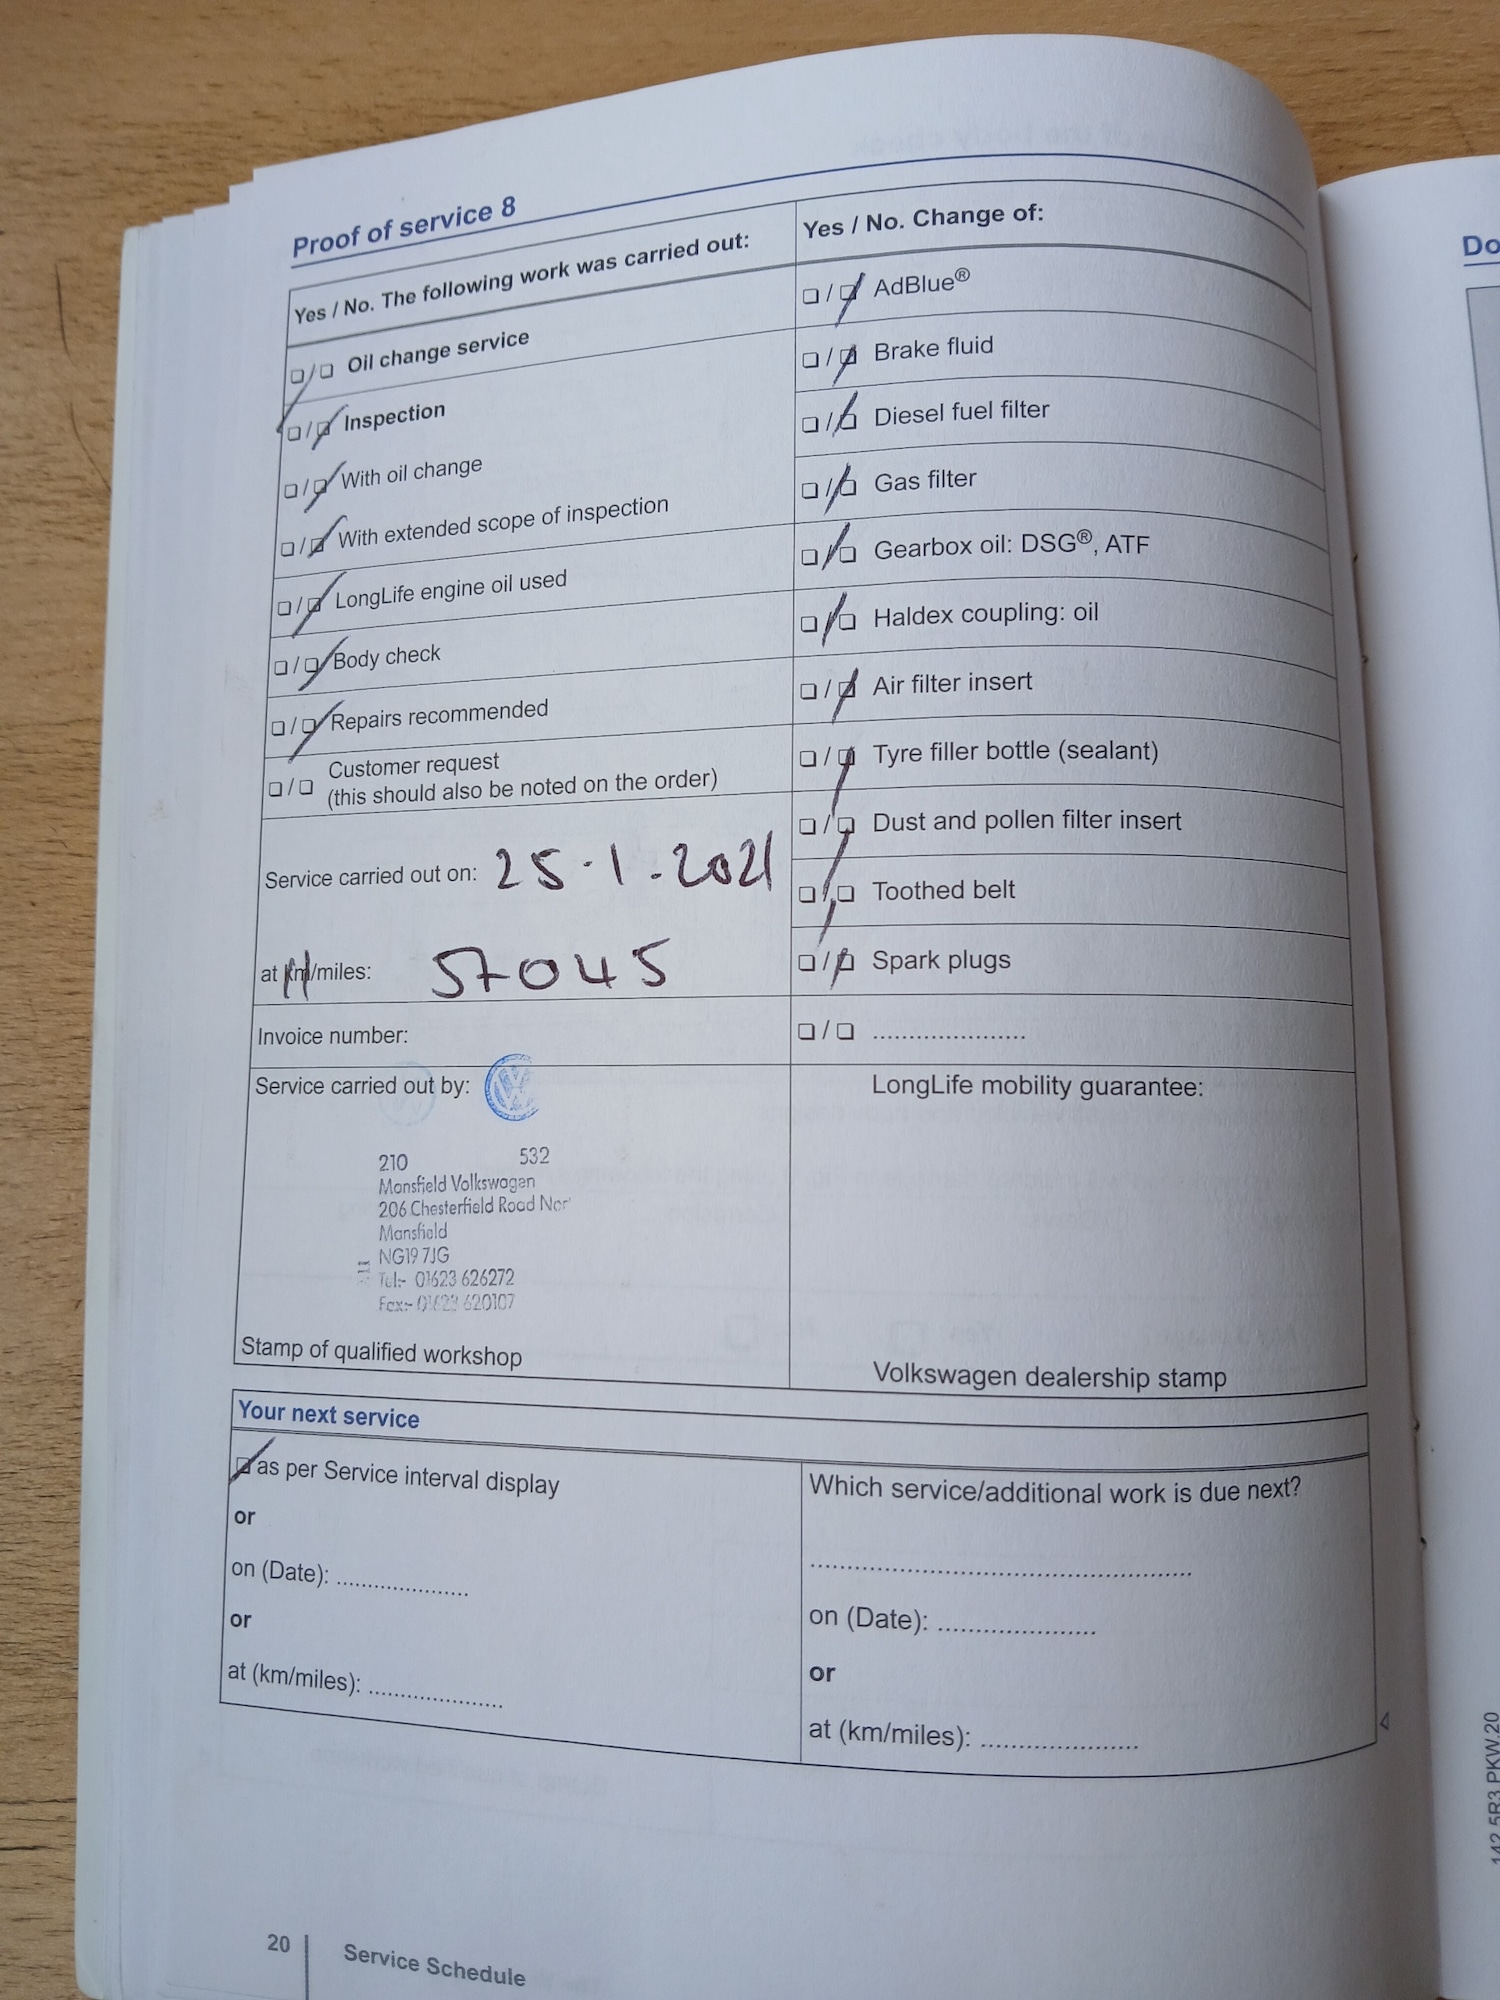 Proof of service 8
Yes / No. The following work was carried out:
☐/☐ Oil change service
☐/☐ Inspection
☐/☐ With oil change
☐/☐ With extended scope of inspection
☐/☐ LongLife engine oil used
☐/☐ Body check
☐/☐ Repairs recommended
☐/☐ Customer request
(this should also be noted on the order)
Service carried out on: 25.1.2021
at km/miles: 57045
Invoice number:
Service carried out by:
210 532
Mansfield Volkswagen
206 Chesterfield Road Nor
Mansfield
NG19 7JG
Tel:- 01623 626272
Fax:- 01623 620107
Stamp of qualified workshop
Yes / No. Change of:
☐/☐ AdBlue®
☐/☐ Brake fluid
☐/☐ Diesel fuel filter
☐/☐ Gas filter
☐/☐ Gearbox oil: DSG®, ATF
☐/☐ Haldex coupling: oil
☐/☐ Air filter insert
☐/☐ Tyre filler bottle (sealant)
☐/☐ Dust and pollen filter insert
☐/☐ Toothed belt
☐/☐ Spark plugs
☐/☐ ......................
LongLife mobility guarantee:
Volkswagen dealership stamp
Your next service
☐ as per Service interval display
or
on (Date): ....................
or
at (km/miles): ....................
Which service/additional work is due next?
..................................................
on (Date): ......................
or
at (km/miles): ......................
20
Service Schedule
Do
142.5R3.PKW.20